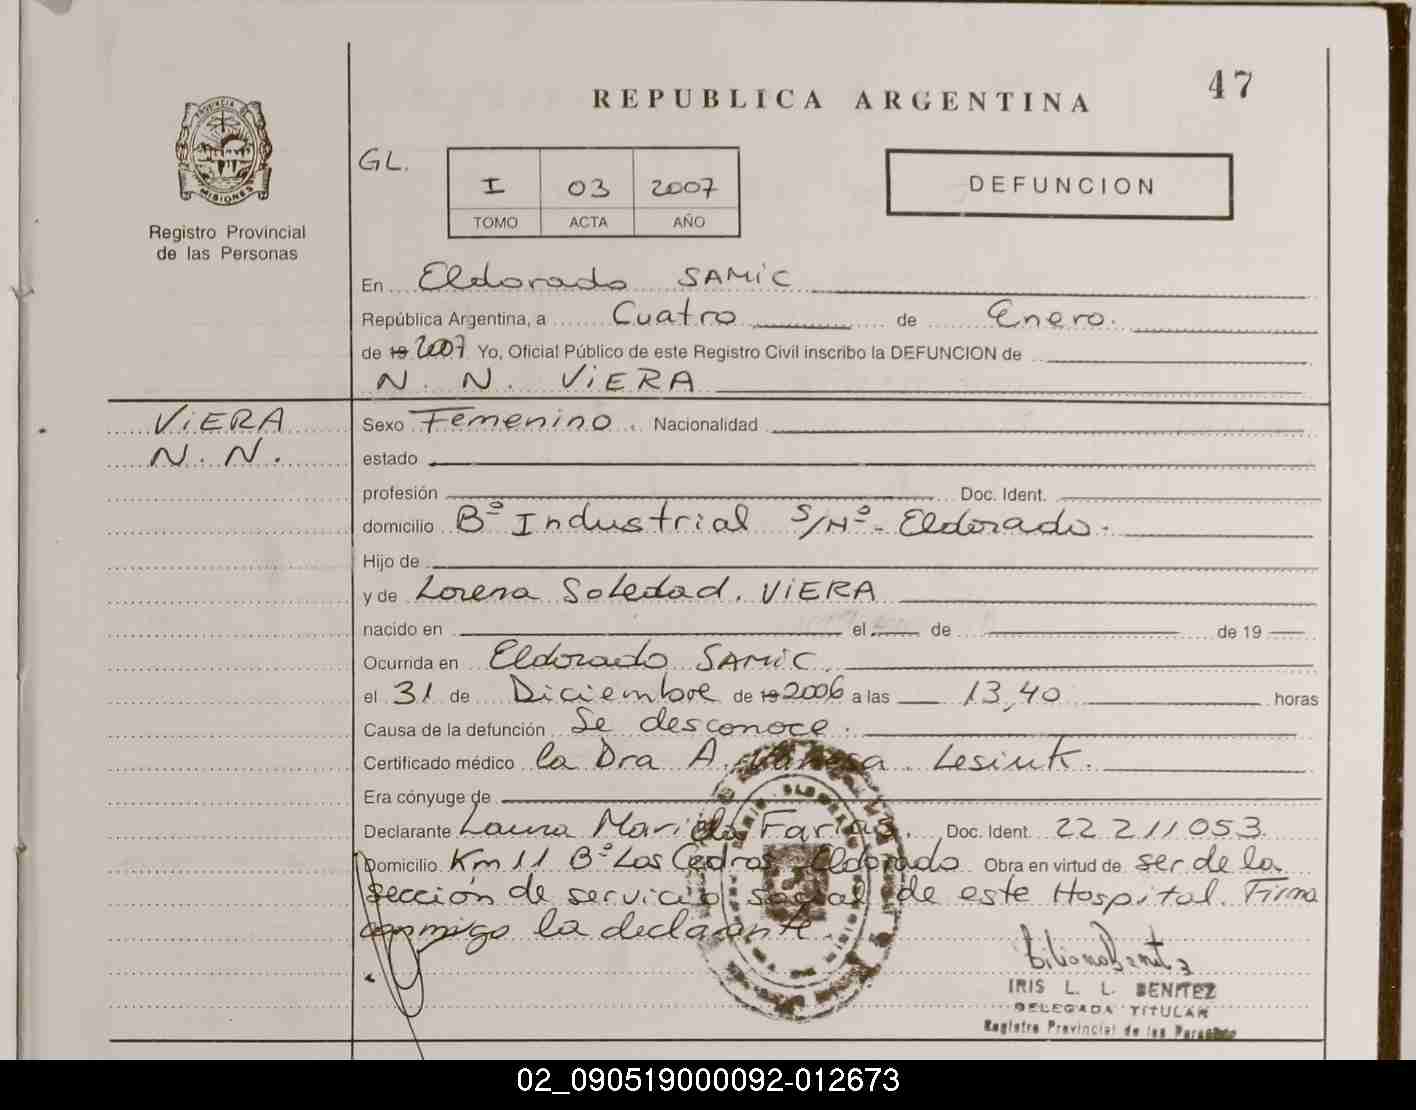 REPUBLICA ARGENTINA
47
PROVINCIA DE
MISIONES
Registro Provincial
de las Personas
GL.
I 03 2007
TOMO ACTA AÑO
DEFUNCION
En Eldorado SAMiC
República Argentina, a Cuatro de Enero.
de 19 2007 Yo, Oficial Público de este Registro Civil inscribo la DEFUNCION de
N. N. ViERA
ViERA
N. N.
Sexo Femenino. Nacionalidad
estado
profesión Doc. Ident.
domicilio Bº Industrial S/Nº - Eldorado.
Hijo de
y de Lorena Soledad. ViERA
nacido en el de de 19
Ocurrida en Eldorado SAMiC.
el 31 de Diciembre de 19 2006 a las 13,40 horas
Causa de la defunción Se desconoce.
Certificado médico la Dra A. Vanesa. Lesiuk.
Era cónyuge de
Declarante Laura Mariela Farias. Doc. Ident. 22 211053.
Domicilio Km 11 Bº Los Cedros - Eldorado Obra en virtud de ser de la
sección de servicio social de este Hospital. Firma
conmigo la declarante.
IRIS L. L. BENITEZ
DELEGADA TITULAR
Registro Provincial de las Personas
02_090519000092-012673